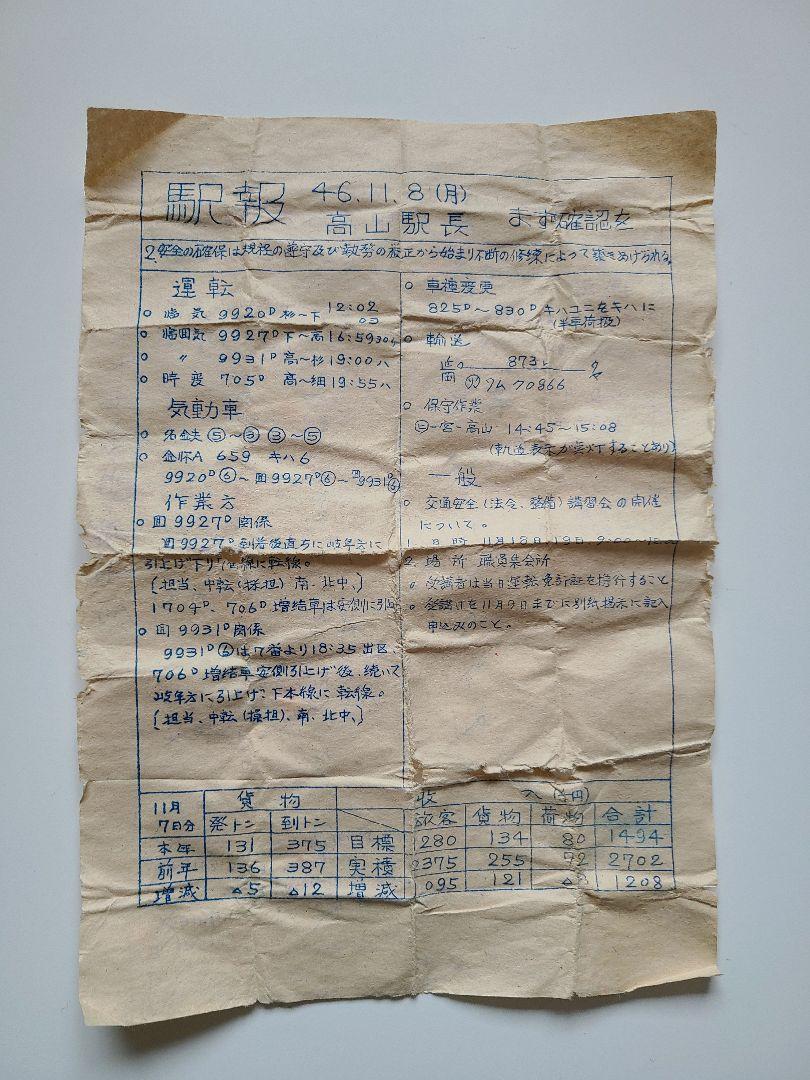 駅報 46.11.8(月)
高山駅長 まず確認を
2.安全の確保は規程の遵守及び執務の厳正から始まり不断の修練によって築きあげられる。
運転
○ 臨気 9920D 杉〜下 12:02 03
○ 臨回気 9927D 下〜高 16:59 30
○ 〃 9931D 高〜杉 19:00 ハ
○ 時変 705D 高〜細 19:55 ハ
気動車
○ 名金夫 ⑤〜③ ③〜⑤
○ A 659 キハ6
9920D⑥〜回9927D⑥〜回9931D⑥
作業方
○ 回9927D関係
回9927D到着後直ちに岐阜方に
引上げ下り 線に転線。
〔担当、中転(操担)、南、北中、〕
1704D、706D増結車は安側に引上
○ 回9931D関係
9931D⑥は7番より18:35出区、
706D増結車安側引上げ後、続いて
岐阜方に引上げ下本線に転線。
〔担当、中転(操担)、南、北中、〕
○ 車種変更
825D〜830D キハユニをキハに
(半車荷扱)
○ 輸送
873
ラム70866
○ 保守作業
一宮-高山 14:45〜15:08
(軌道表示が点灯することあり)
一般
○ 交通安全(法令、整備)講習会の開催
について。
1. 日時 11月18日.19日 9:00〜
2. 場所 職員集会所
○ 受講者は当日運転免許証を携行すること
○ 受講日を11月9日までに別紙掲示に記入
申込みのこと。
11月7日分 貨物 収入(千円)
発トン 到トン 旅客 貨物 荷物 合計
本年 131 375 目標 280 134 80 1494
前年 136 387 実績 2375 255 72 2702
増減 △5 △12 増減 095 121 △8 1208